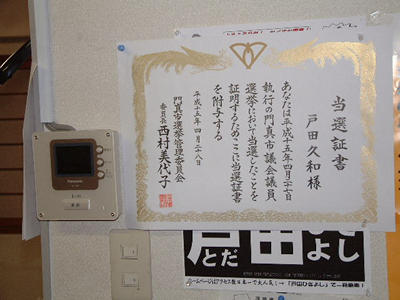 当選証書
戸田久和様
あなたは平成十五年四月二十七日
執行の門真市議会議員
選挙において当選したことを
証明するためここに当選証書
を附与する
平成十五年四月二十八日
門真市選挙管理委員会
委員長 西村美代子
Panasonic
戸田
とだ よし
ホームページはアクセス数日本一で大人気!→「戸田ひさよし」で一発検索!